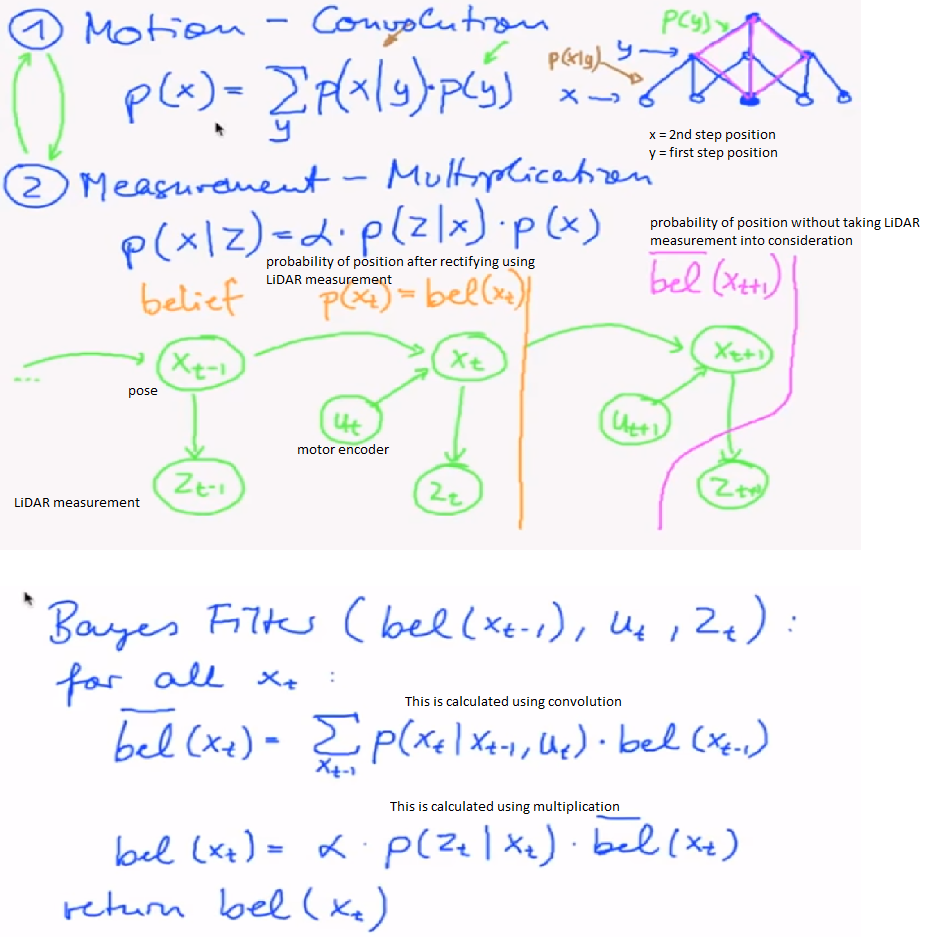 ① Motion - Convolution
p(x) = Σ_y p(x|y)·p(y)
P(y)
p(x|y)
y →
x →
x = 2nd step position
y = first step position
② Measurement - Multiplication
p(x|z) = α · p(z|x) · p(x)
probability of position without taking LiDAR
measurement into consideration
probability of position after rectifying using
LiDAR measurement
belief p(x_t) = bel(x_t)
b̅e̅l̅(x_{t+1})
...
x_{t-1}
x_t
x_{t+1}
pose
u_t
u_{t+1}
motor encoder
z_{t-1}
z_t
z_{t+1}
LiDAR measurement
Bayes Filter (bel(x_{t-1}), u_t, z_t):
for all x_t :
This is calculated using convolution
b̅e̅l̅(x_t) = Σ_{x_{t-1}} p(x_t | x_{t-1}, u_t) · bel(x_{t-1})
This is calculated using multiplication
bel(x_t) = α · p(z_t | x_t) · b̅e̅l̅(x_t)
return bel(x_t)